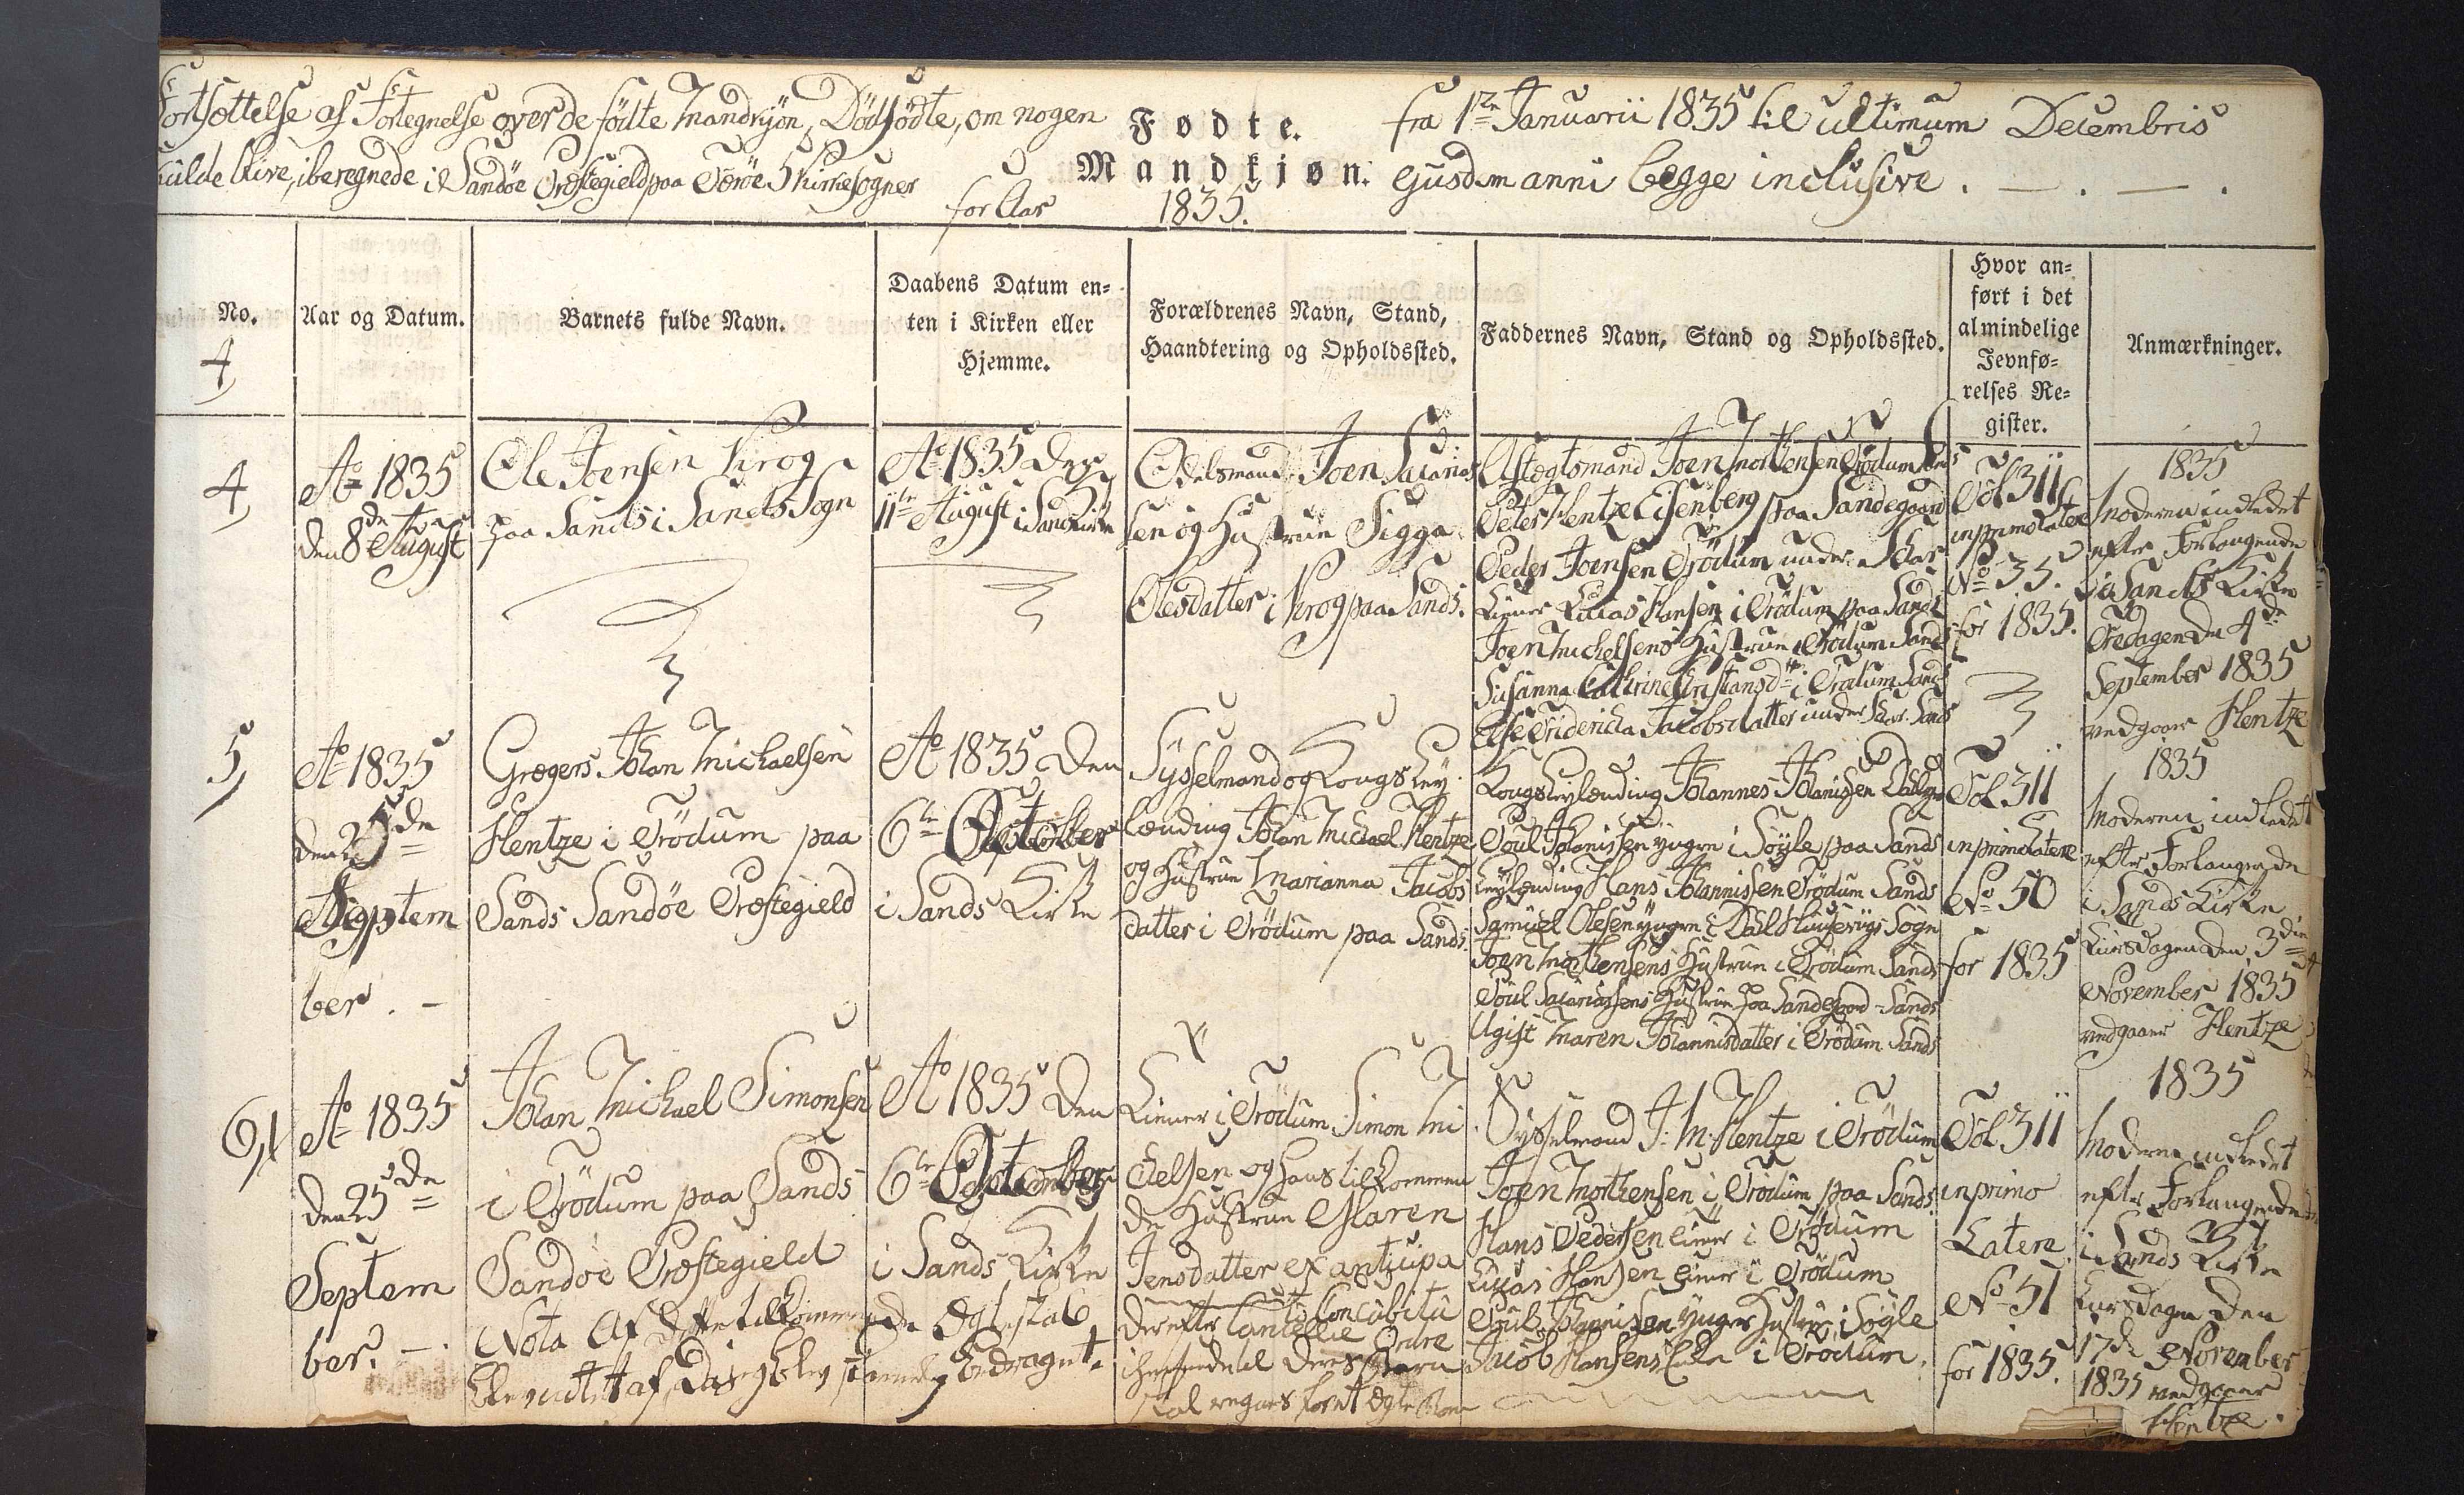 Fortsættelse af Fortegnelse over de fødte Mandkjön, Dødfødte, om nogen
skulde blive, iberegnede i Sandöe Præstegield paa Færöe 5 Kirkesogner
for Aar 1835.
Fødte.
Mandkjøn.
fra 1te Januarii 1835 til ultimum Decembris
ejusdem anni begge inclusive.
No.
4
Aar og Datum.
Barnets fulde Navn.
Daabens Datum en=
ten i Kirken eller
Hjemme.
Forældrenes Navn, Stand,
Haandtering og Opholdssted.
Faddernes Navn, Stand og Opholdssted.
Hvor an=
ført i det
almindelige
Jevnfø=
relses Re=
gister.
Anmærkninger.
4
Ao 1835
den 8de August
Ole Joensen Krog
paa Sands i Sands Sogn
Ao 1835 den
11te August i Sands Kirke
Odelsmand Joen Sacarias
sen og Hustrue Sigga
Olesdatter i Krog paa Sands.
Aftægtsmand Joen Morthensen Trödum Sands
Peter Hentze Eisenberg paa Sandegaard
Peder Joensen Trödum under Skar
Lucas Hansen i Trödum paa Sands
Joen Michelsens Hustrue i Trödum Sands
Susanna Cathrine Christiansdtr i Trödum Sands
Else Fridericha Jacobsdatter under Skar Sands
Fol 311
in primo latere
No 35.
for 1835.
1835
Moderen indledet
efter Forlangende
i Sands Kirke
Fredagen den 4de
September 1835
vedgaaer Hentze
5
Ao 1835
den 25de
Septem
ber. -
Gregers Johan Michaelsen
Hentze i Trödum paa
Sands Sandöe Præstegield
Ao 1835 den
6te October
i Sands Kirke
Sysselmand og Kongs Ley
lænding Johan Michael Hentze
og Hustrue Marianna Jacobs
datter i Trödum paa Sands.
Kongs Leylænding Johannes Johanissen
Poul Johanissen yngre i Söyle paa Sands
Leylænding Hans Johannissen Trödum Sands
Samuel Olesen yngre i Dahl Huusevigs Sogn
Joen Morthensens Hustrue i Trödum Sands
Poul Sacariassens Hustrue paa Sandegaard Sands
Ugift Maren Johannisdatter i Trödum Sands
Fol 311
in primo latere
No 50
for 1835
1835
Moderen indledet
efter Forlangende
i Sands Kirke
Tiirsdagen den 3die
November 1835
vedgaaer Hentze
6
Ao 1835
den 25de
Septem
ber. -
Johan Michael Simonsen
i Trödum paa Sands
Sandöe Præstegield
Nota Af dette tilkommende Ægteskab
Ao 1835 den
6te October
i Sands Kirke
i Trödum Simon Mi
chelsen og hans tilkommen
de Hustrue Maren
Jensdatter ex anticipa
to Concubitu
derefter Cancellie Ordre
deres Barn
skal regnes for et Ægte Barn
Sysselmand J. M. Hentze i Trödum
Joen Morthensen i Trödum paa Sands
Hans Pedersen i Trödum
Lucas Hansen i Trödum
Poul Johannissen yngres Hustrue i Söyle
Jacob Hansens i Trödum.
Fol 311
in primo
Latere
No 51
for 1835.
1835
Moderen indledet
efter Forlangende
i Sands Kirke
Tiirsdagen den
17de November
1835 vedgaaer
Hentze.